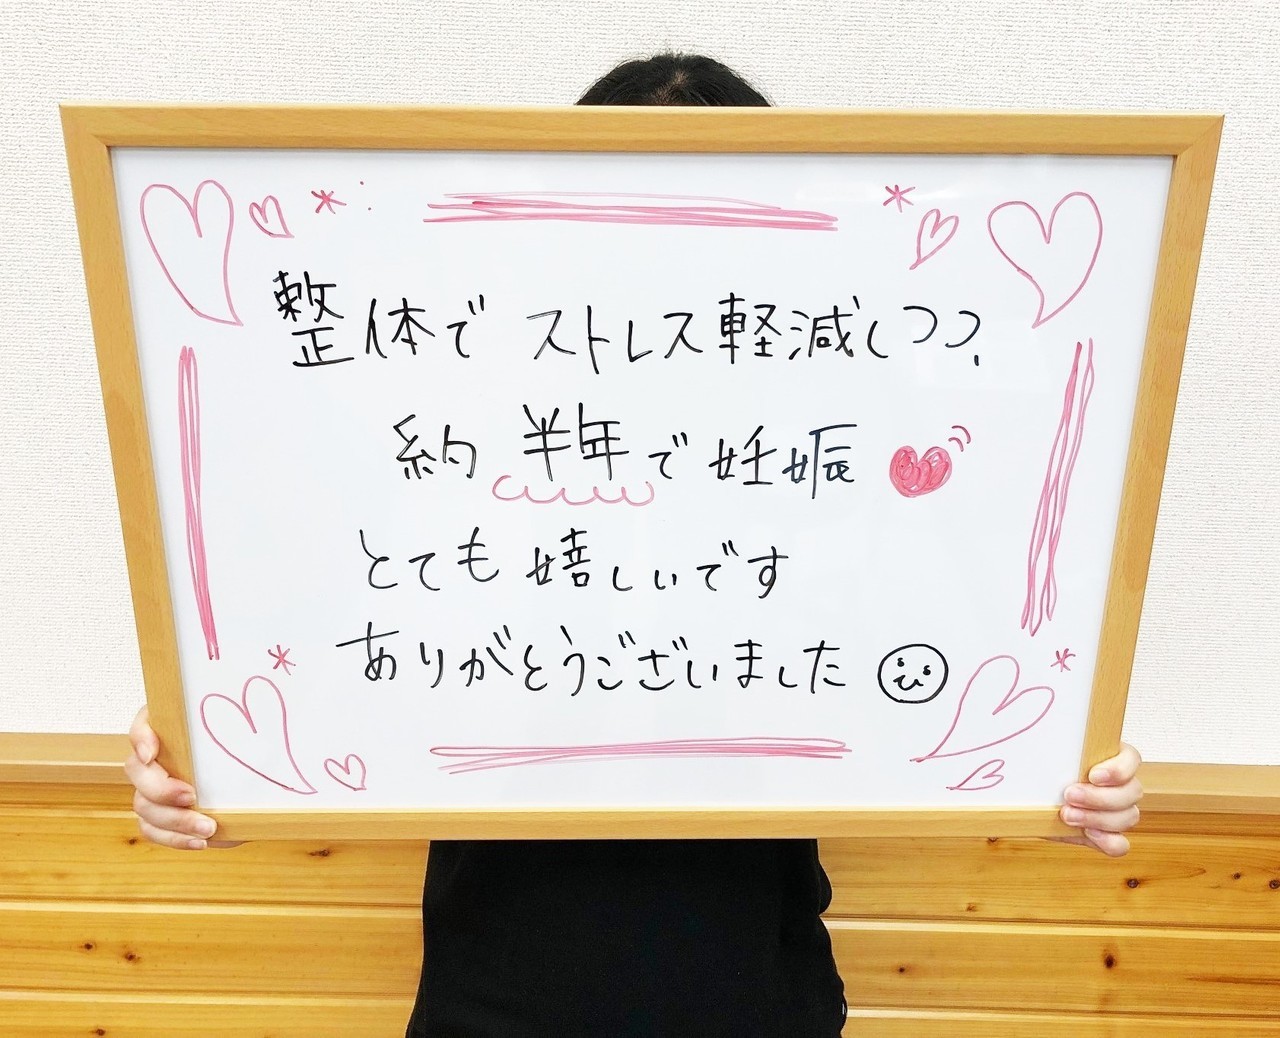 整体でストレス軽減しつつ、
約半年で妊娠
とても嬉しいです
ありがとうございました